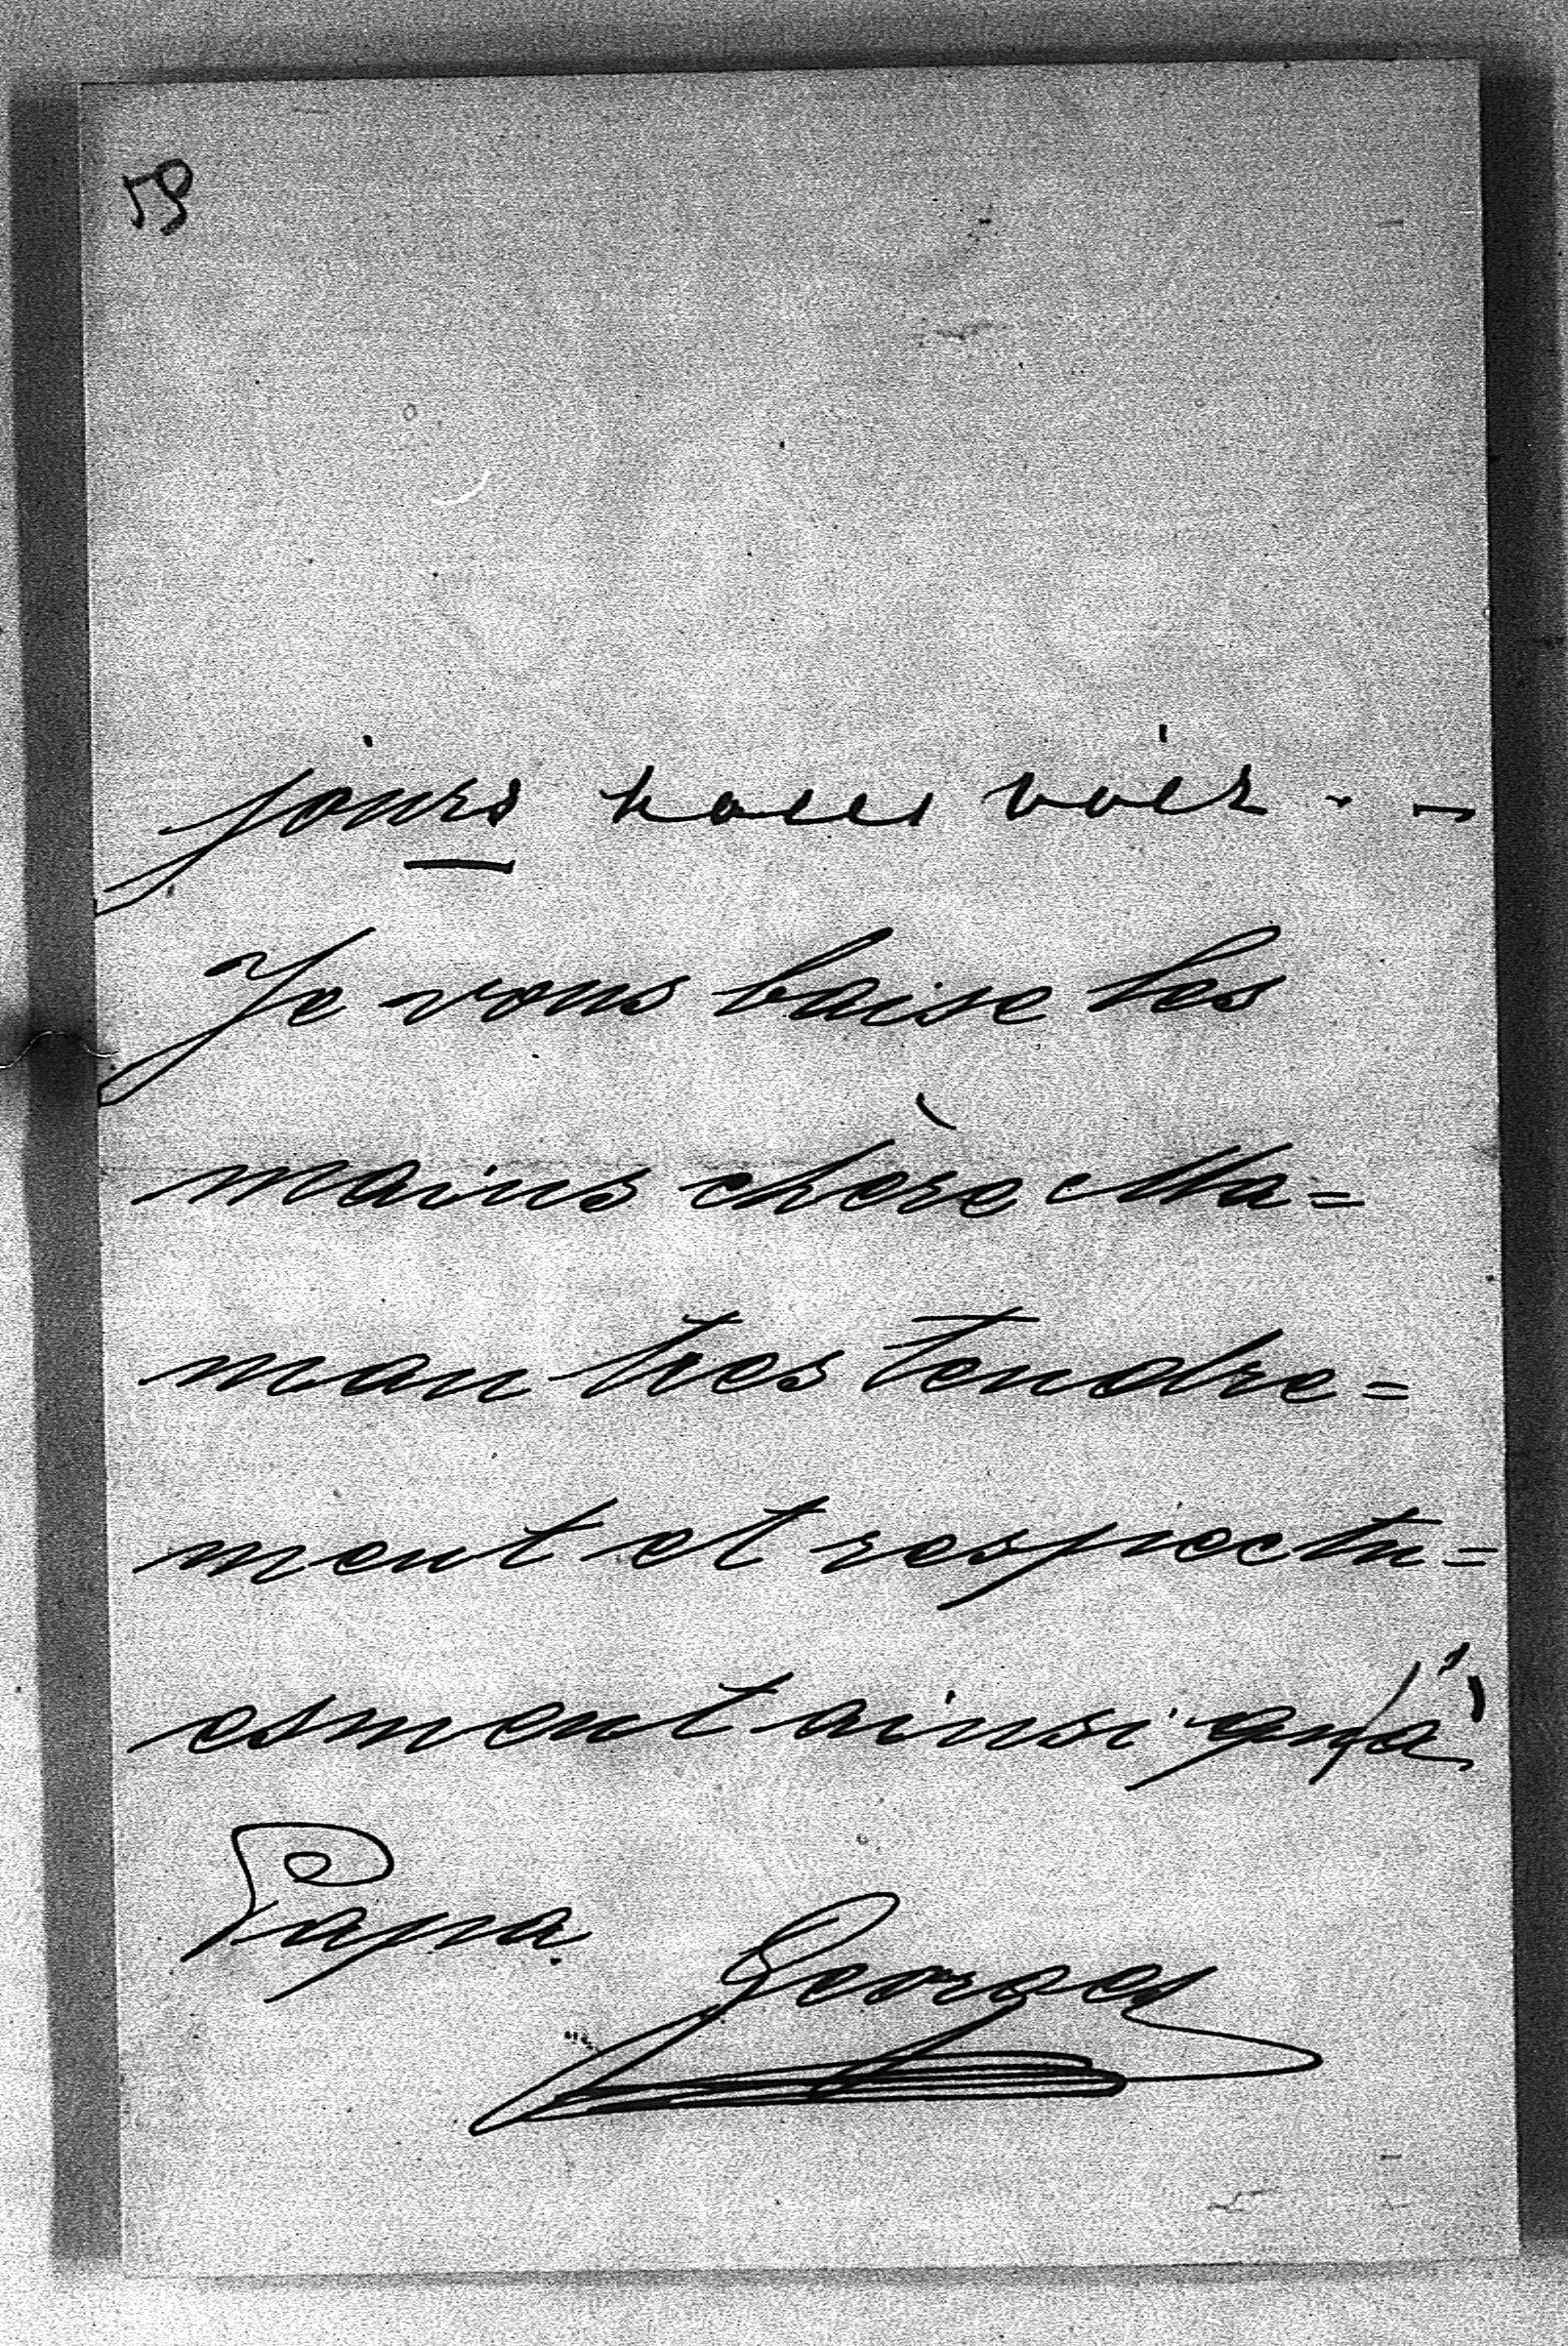 59
jours nous voir . –
Je vous baise les
mains chère Ma=
man tres tendre=
ment et respectu=
esment ainsi qu'à
Papa.
Georges